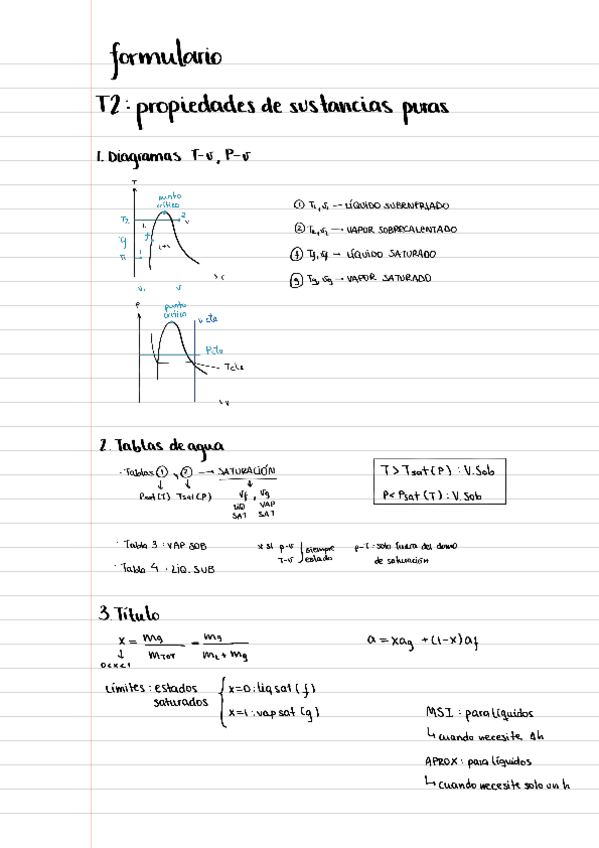 formulario
T2: propiedades de sustancias puras
1. Diagramas T-v, P-v
T
punto
crítico
T2
2
L
V
L+V
T1
1
V1
V
① T1, v1 → LÍQUIDO SUBENFRIADO
② T2, v2 → VAPOR SOBRECALENTADO
ⓕ Tf, vf → LÍQUIDO SATURADO
ⓖ Tg, vg → VAPOR SATURADO
P
punto
crítico
v cte
P cte
T cte
2. Tablas de agua
· Tablas ①, ② → SATURACIÓN
Psat(T) Tsat(P)
Vf, Vg
LIQ VAP
SAT SAT
T > Tsat(P) : V.Sob
P < Psat(T) : V.Sob
· Tabla 3 : VAP SOB
· Tabla 4 : LIQ. SUB
* si p-v
T-v
siempre
estado
p-T : solo fuera del domo
de saturación
3. Título
x = mg / mTOT = mg / mL + mg
0<x<1
a = xag + (1-x)af
Límites : estados
saturados
x=0 : liq sat (f)
x=1 : vap sat (g)
MSI : para líquidos
↳ cuando necesite Δh
APROX : para líquidos
↳ cuando necesite solo un h